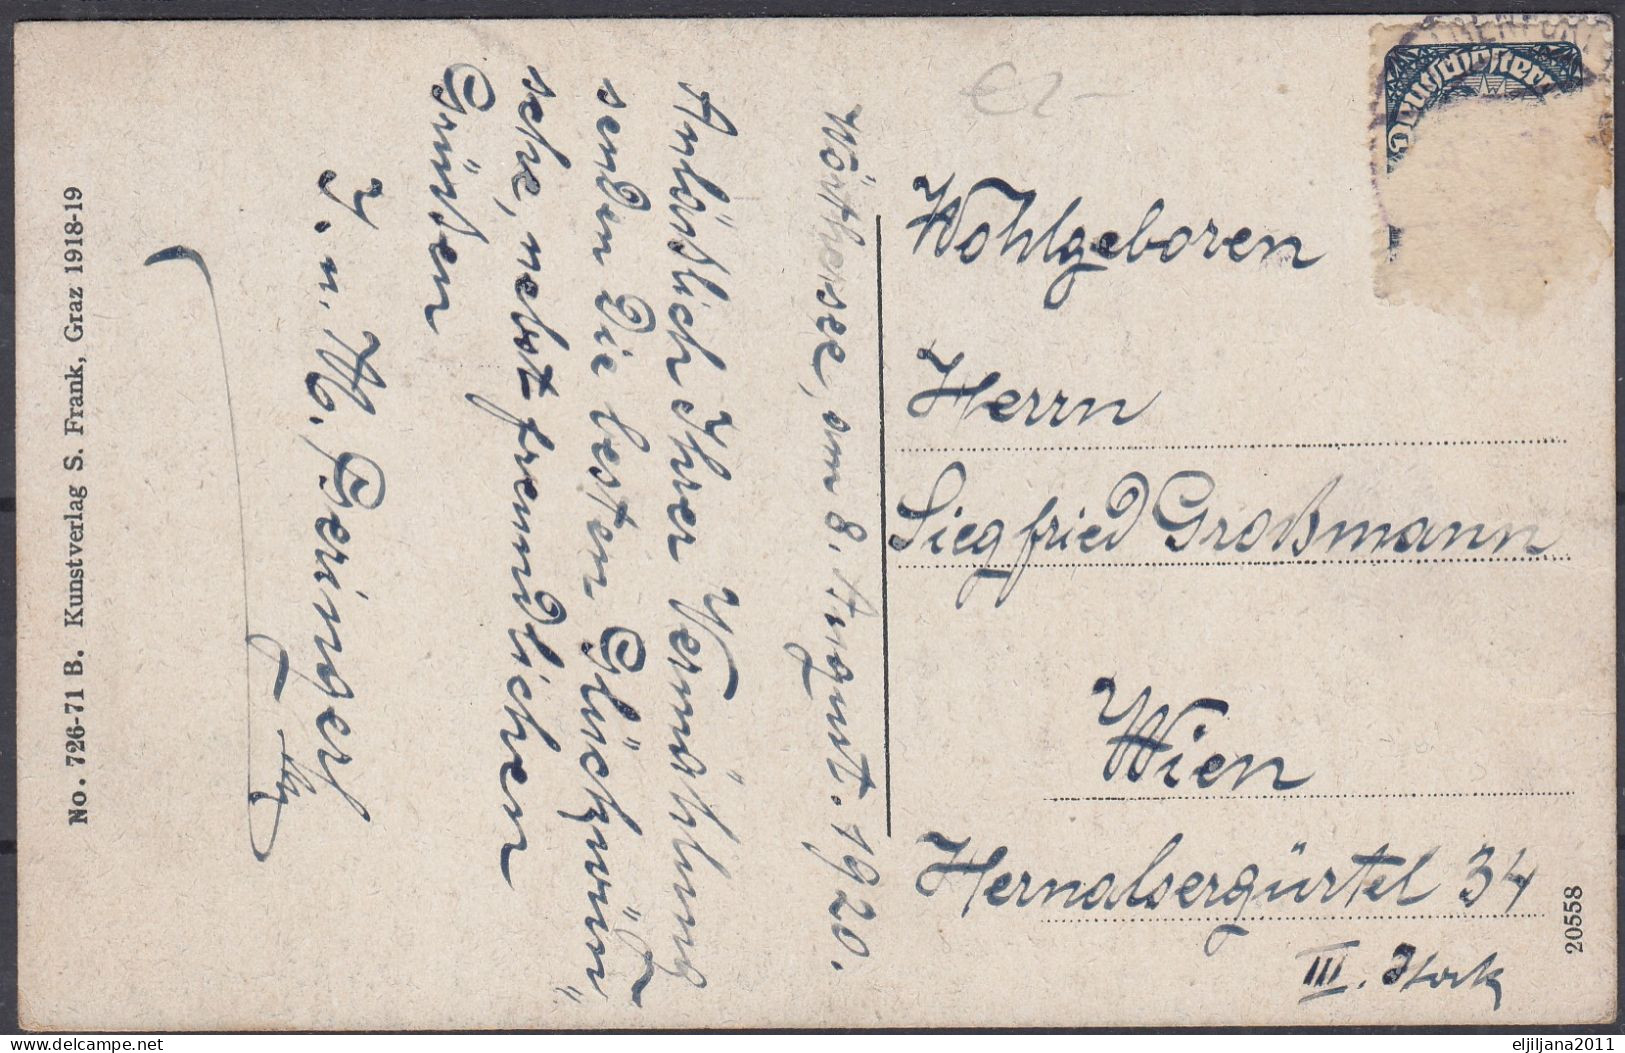 Wörthersee, am 8. August. 1920.
Anläßlich Ihrer Vermählung
senden die besten Glückwün"
sche, nebst freundlichen
Grüßen
J. u. M. Beringer
No. 726-71 B. Kunstverlag S. Frank, Graz 1918-19
€2-
Deutschösterr
Wohlgeboren
Herrn
Siegfried Großmann
Wien
Hernalsergürtel 34
III. Stock
20558
delcampe.net
eljiljana2011